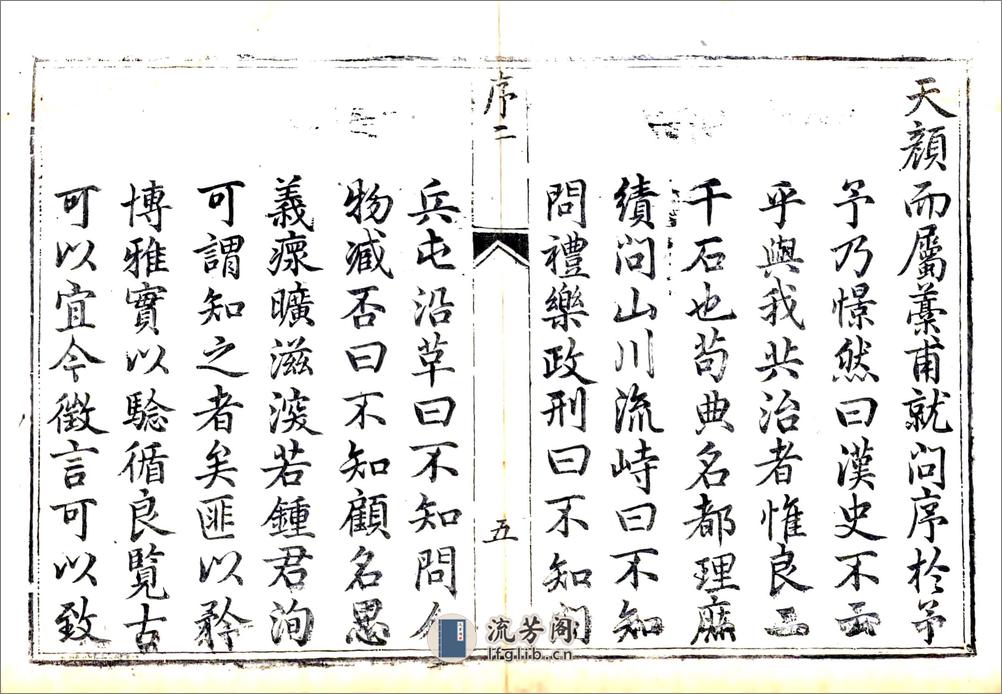 天顏而屬藁甫就問序於予
予乃憬然曰漢史不云
乎與我共治者惟良二
千石也苟典名都理庶
績問山川流峙曰不知
問禮樂政刑曰不知問
序二
五
兵屯沿革曰不知問人
物臧否曰不知顧名思
義瘝曠滋深若鍾君洵
可謂知之者矣匪以矜
博雅實以驗循良覽古
可以宜今徵言可以致
流芳阁
lfglib.cn